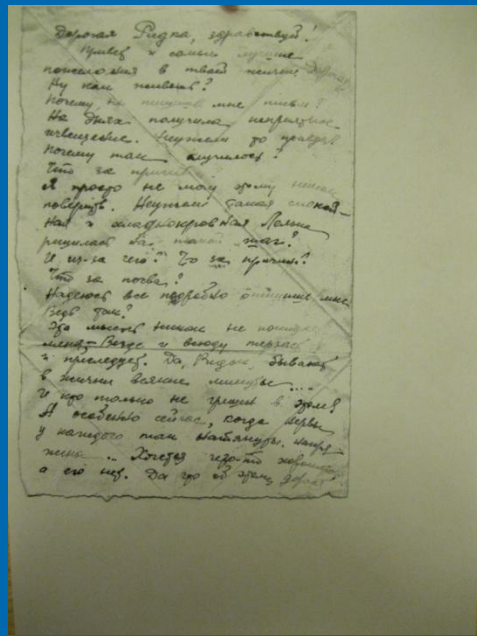 Дорогая Ридка, здравствуй!
Привет и самые лучшие
пожелания в твоей жизни
Ну как живешь?
Почему не пишешь мне писем?
На днях получила неприятное
извещение. Неужели то правда?
Почему так случилось?
Что за причина
Я просто не могу этому никак
поверить. Неужели такая спокой-
ная и хладнокровная Лелька
решилась на такой шаг?
И из-за чего? Что за причина?
Что за почва?
Надеюсь все подробно опишешь мне
Ведь так?
Эта мысль никак не
меня Везде и всюду терзает
и преследует. Да, Видно, бывают
в жизни всякие минуты....
И кто только не грешен в этом?
А особенно сейчас, когда нервы
у каждого так натянуты, напря-
жены... Хочется чего-то хорошего
а его нет. Да что об этом